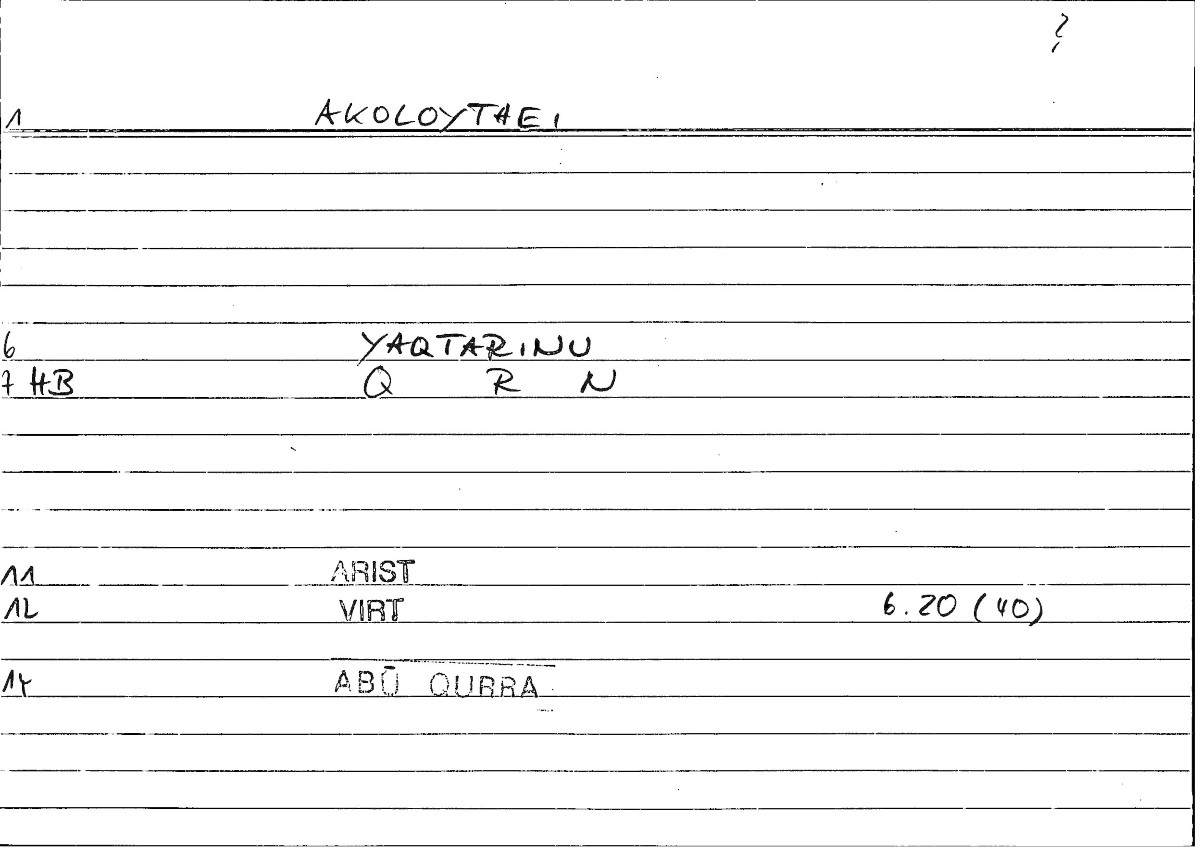 ?
1 AKOLOYTHEI
6 YAQTARINU
7 HB Q R N
11 ARIST
12 VIRT 6.20 (40)
14 ABŪ QURRA